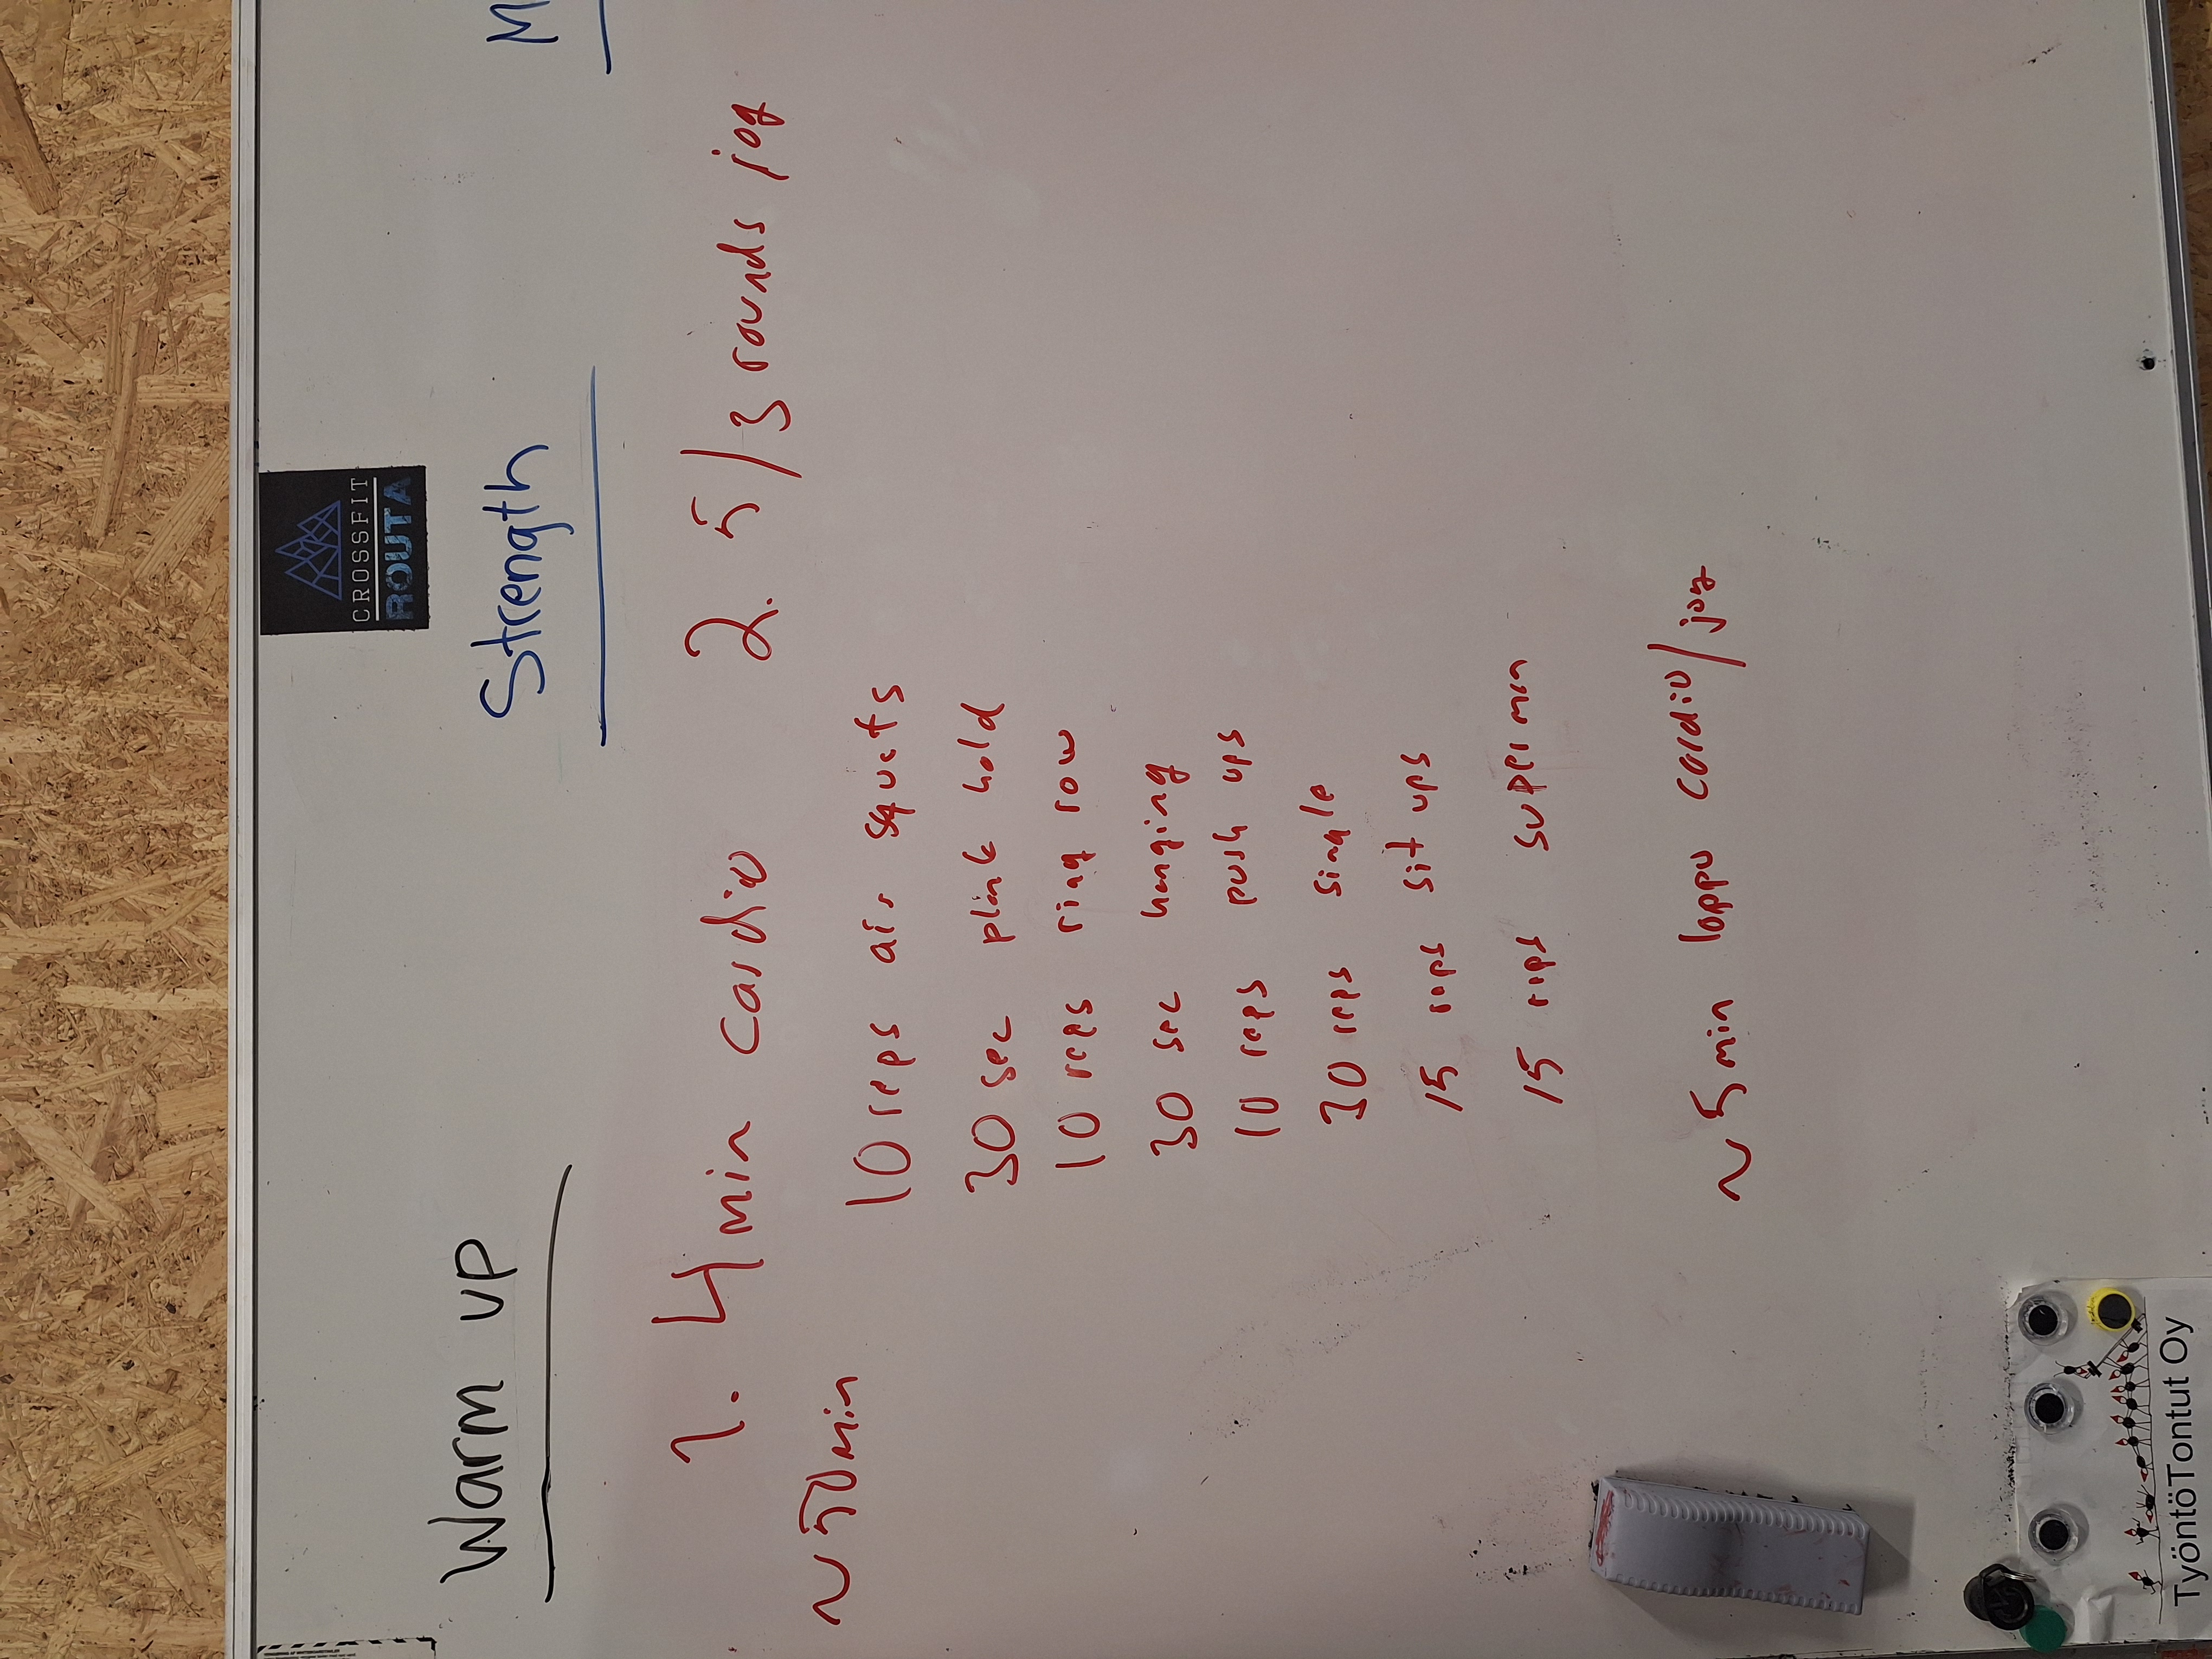 CROSSFIT
ROUTA
Warm up
Strength
M
1. 4min cardio
2. 5/3 rounds jog
~ 50min
10 reps air squats
30 sec plank hold
10 reps ring row
30 sec hanging
10 reps push ups
30 reps single
15 reps sit ups
15 reps superman
~ 5min loppu cardio/jog
TyöntöTontut Oy